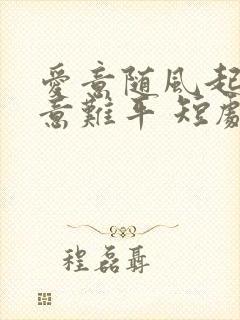 愛意随風起
意難平 短劇
程磊聶